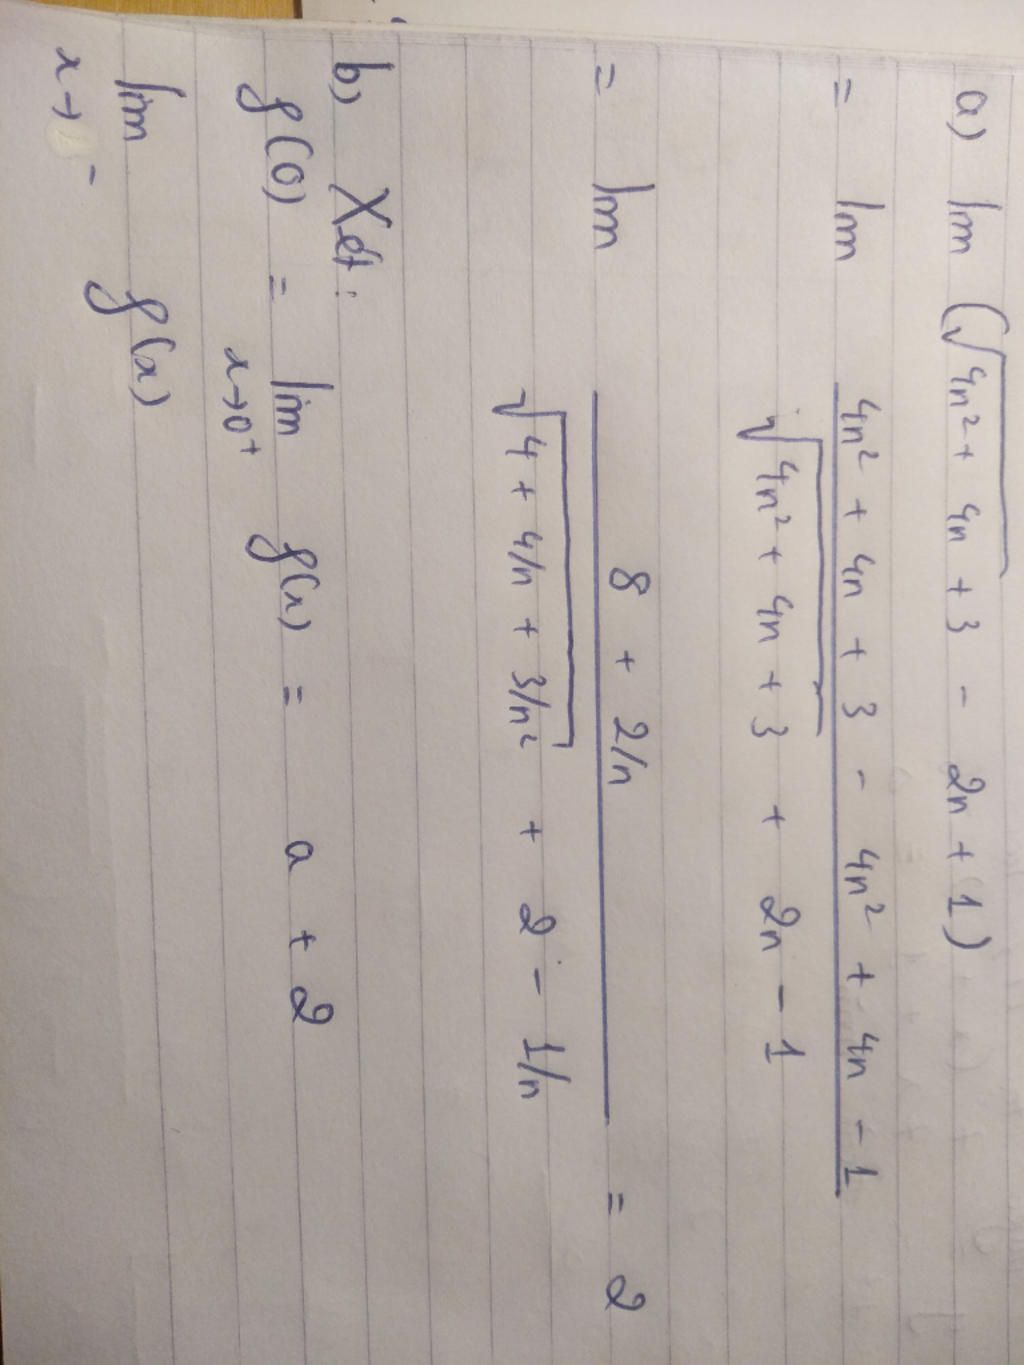 a) lim (√4n² + 4n + 3 - 2n + 1)
= lim 4n² + 4n + 3 - 4n² + 4n - 1
√4n² + 4n + 3 + 2n - 1
= lim 8 + 2/n = 2
√4 + 4/n + 3/n² + 2 - 1/n
b) Xét:
f(0) = lim f(x) = a + 2
x→0⁺
lim f(x)
x→ ⁻